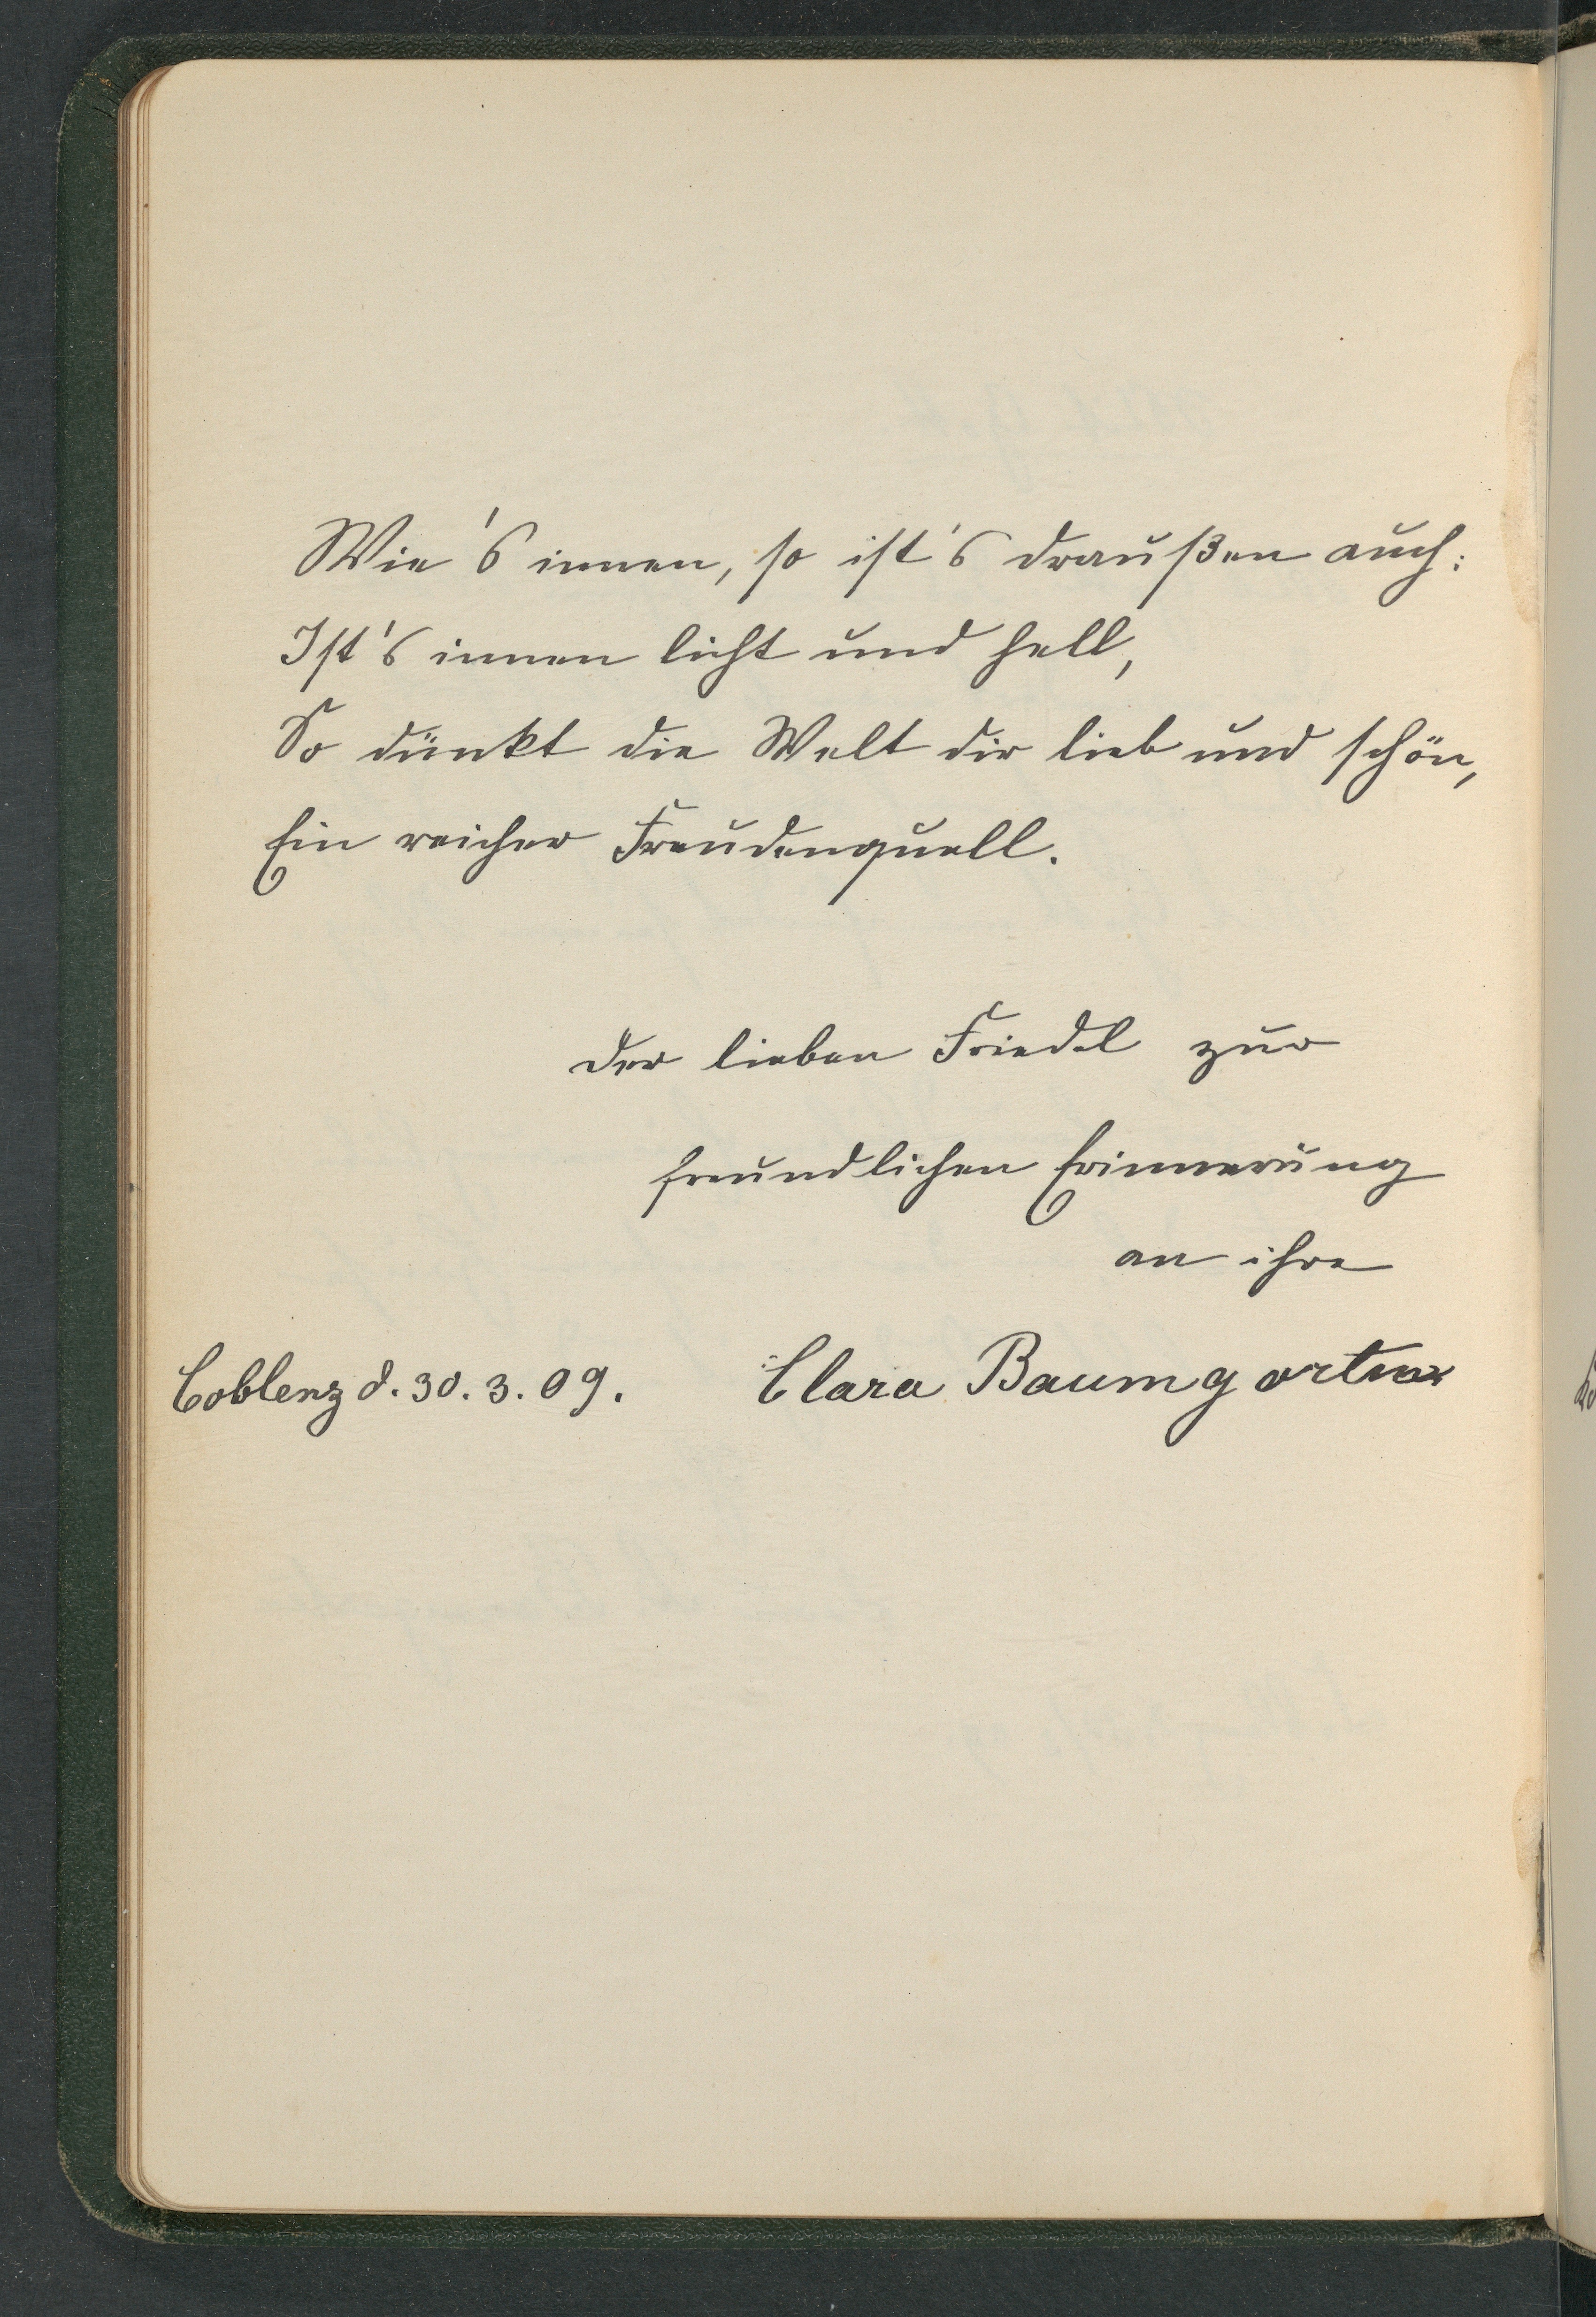 Wie's innen, so ist's draußen auch:
Ist's innen licht und hell,
So dünkt die Welt dir lieb und schön,
Ein reicher Freudenquell.
Der lieben Friedel zur
freundlichen Erinnerung
an ihre
Coblenz d. 30. 3. 09. Clara Baumgartner